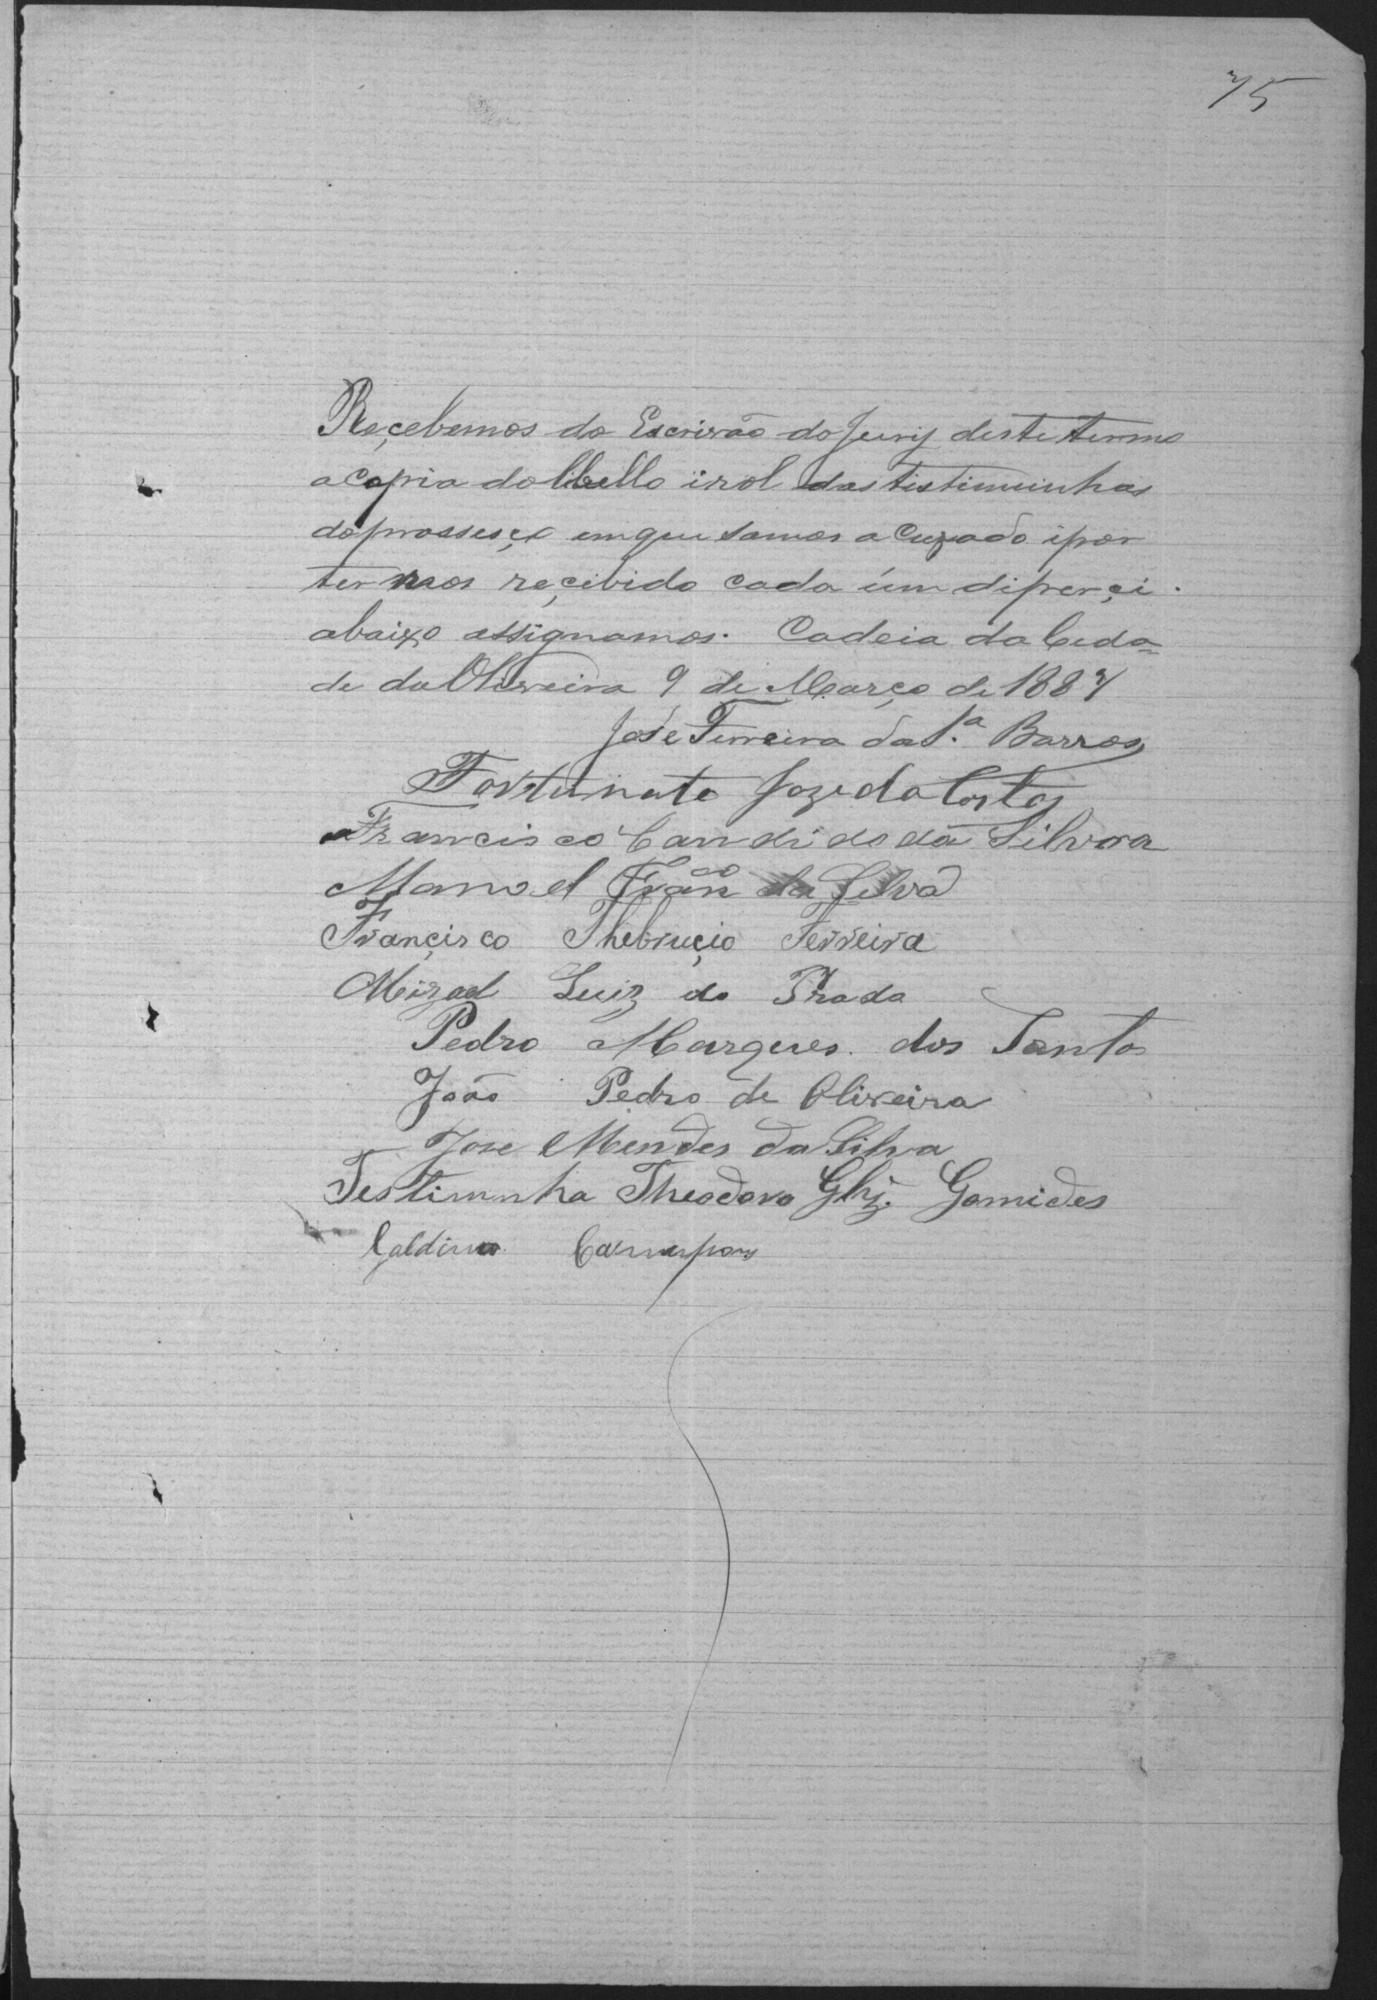 75
Reçebemos do Escrivão do Jury deste termo
a Copia do libello i rol das tistimuinhas
do prossesço em que samos a Cuzado i por
ter mos reçibido cada úm diper çi.
abaixo assignamos. Cadeia da Cida=
de da Oliveira 9 de Março de 1887
José Ferreira da S.ª Barros
Fortunato Joze da Costa
Francisco Candido da Silvora
Manoel Fran^co da Silva
Françisco Ferreira
Mizael Luiz do Prado
Pedro Marques dos Santos
João Pedro de Oliveira
Jose Mendes da Silva
Testimunha Theodoro Glz. Gomides
Galdino Campos